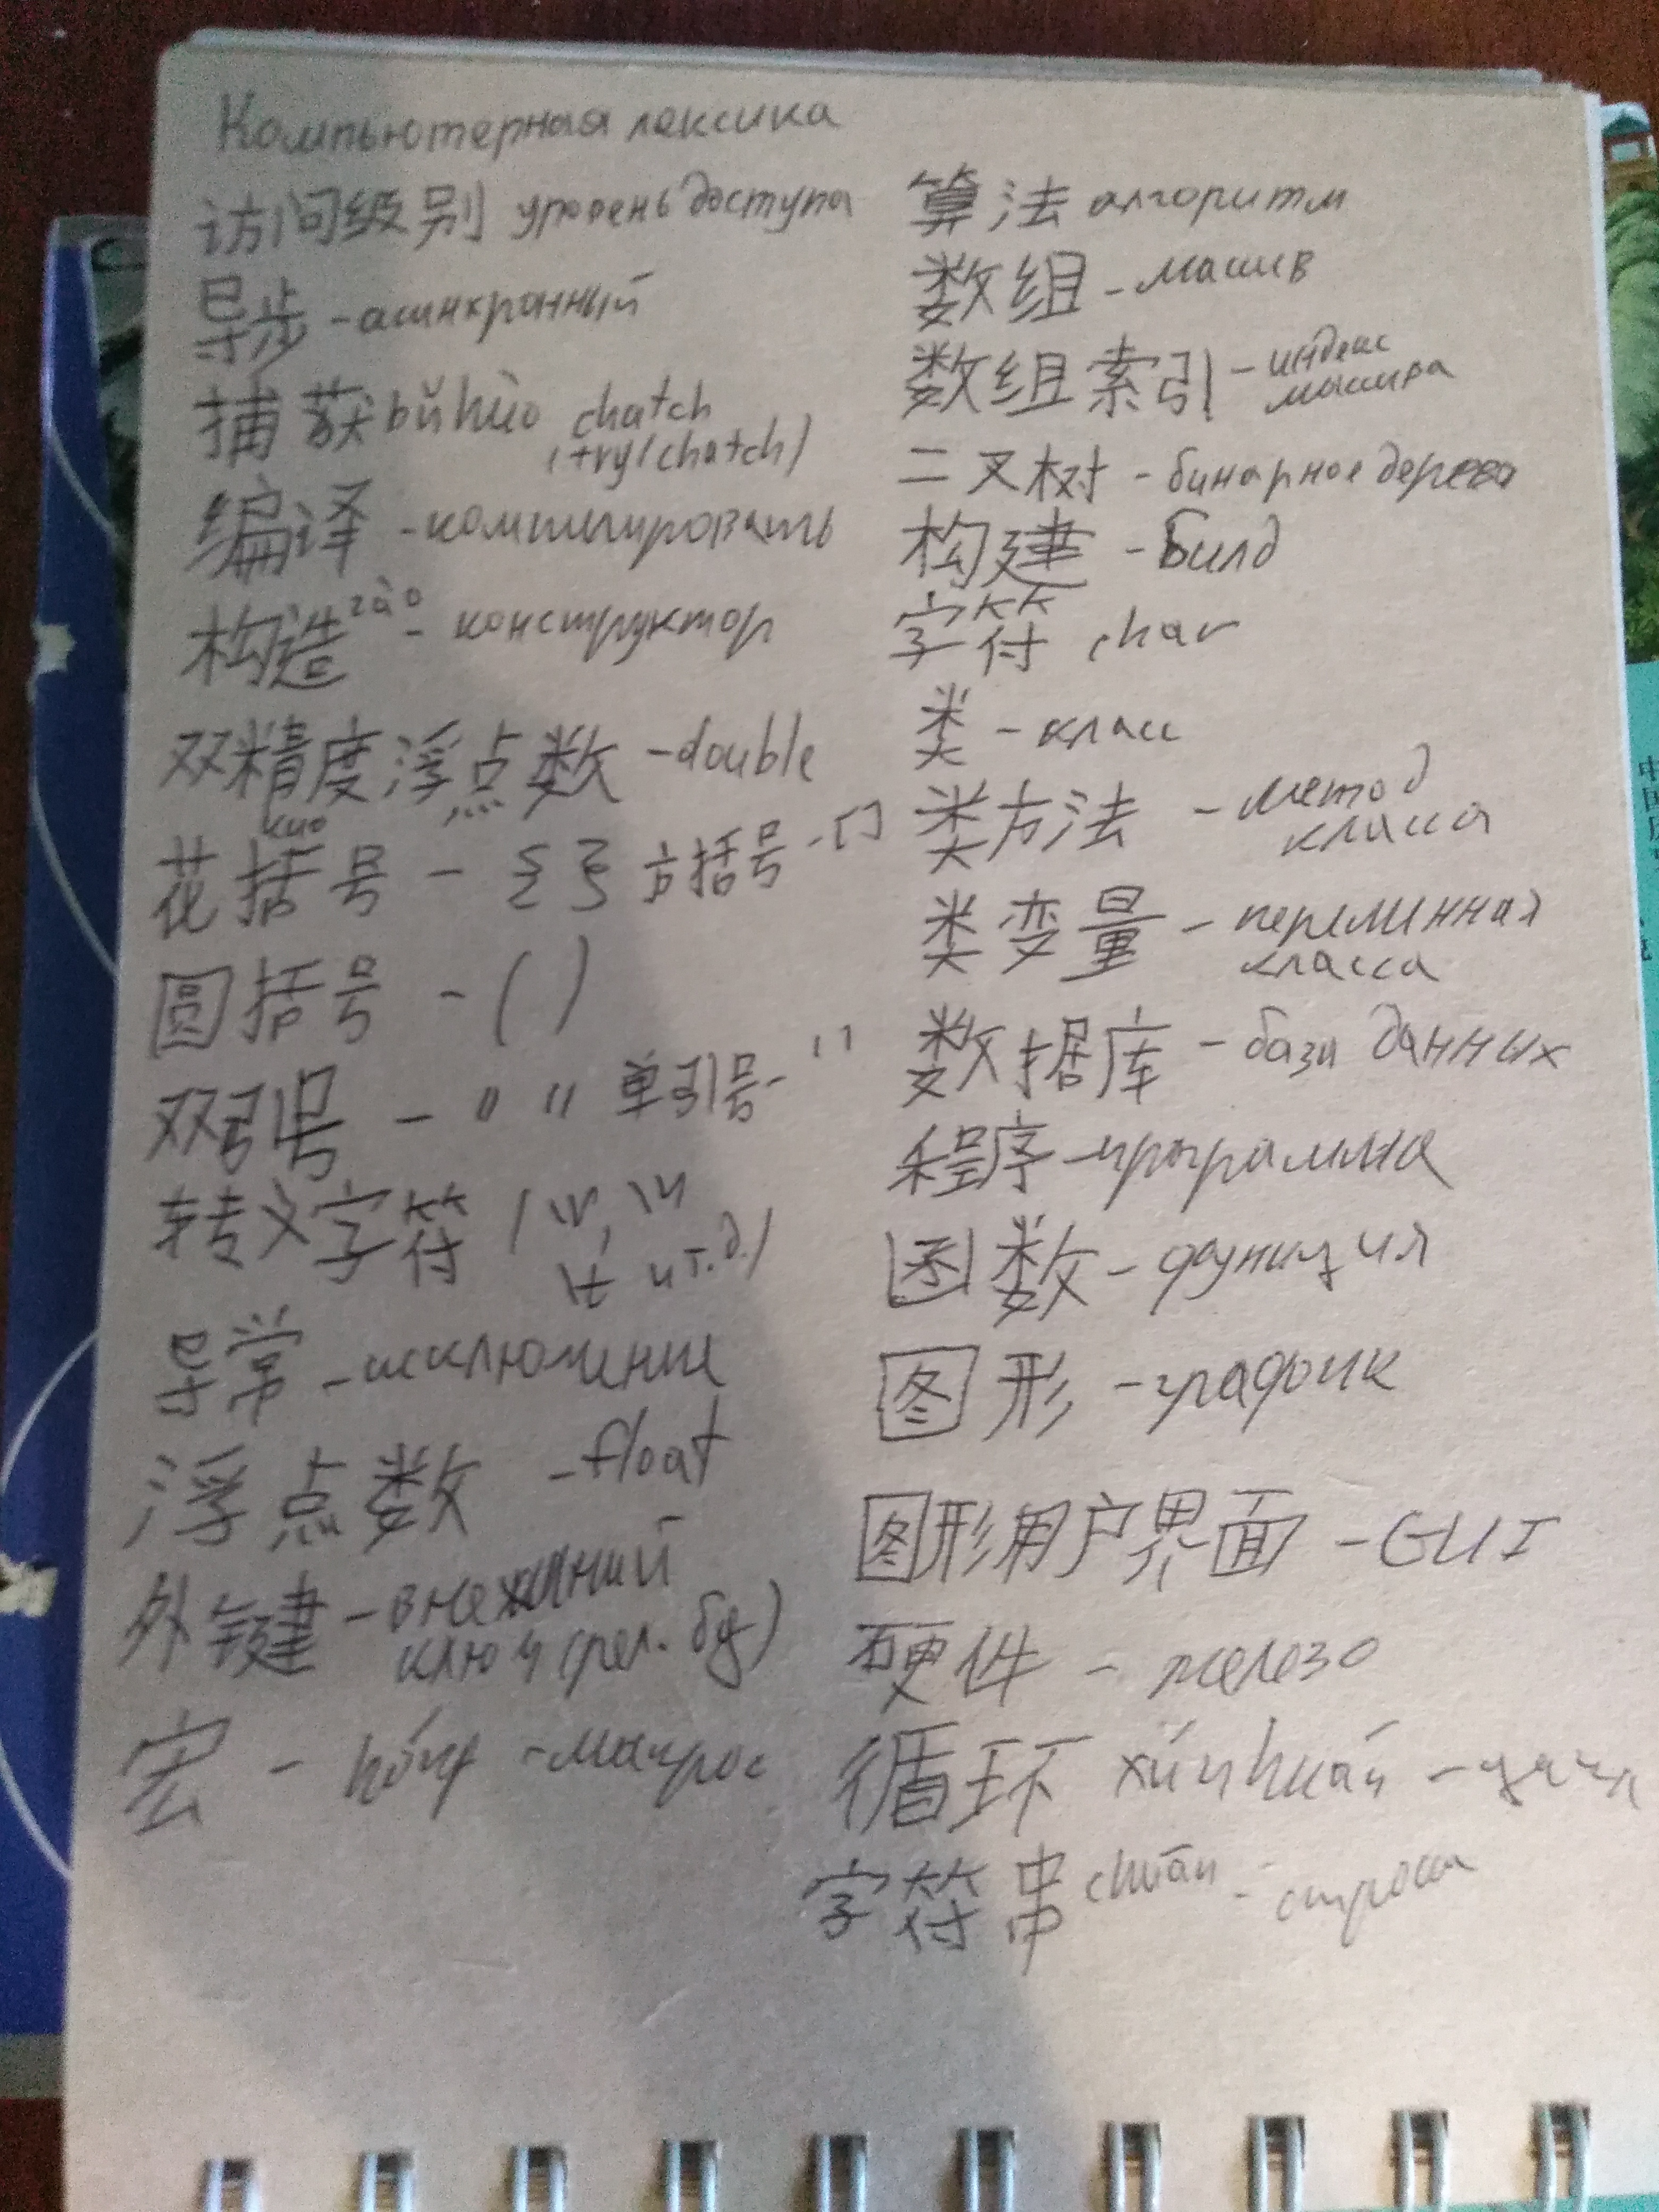 Компьютерная лексика
访问级别 уровень доступа
异步 - асинхронный
捕获 bǔhuò chatch
(try/chatch)
编译 - компилировать
构造 zào - конструктор
双精度浮点数 - double
kuo
花括号 - { } 方括号 - []
圆括号 - ( )
双引号 - " " 单引号 - ' '
转义字符 (\r, \n
\t и т.д.)
异常 - исключение
浮点数 - float
外键 - внешний
ключ (рел. бд)
宏 - hóng - макрос
算法 алгоритм
数组 - масив
数组索引 - индекс
масива
二叉树 - бинарное дерево
构建 - билд
字符 char
类 - класс
类方法 - метод
класса
类变量 - переминная
класса
数据库 - база данных
程序 - программа
函数 - функция
图形 - график
图形用户界面 - GUI
硬件 - железо
循环 xúnhuán - цикл
字符串 chuàn - строка